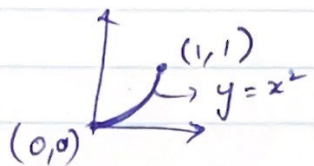 (1,1)
y = x²
(0,0)